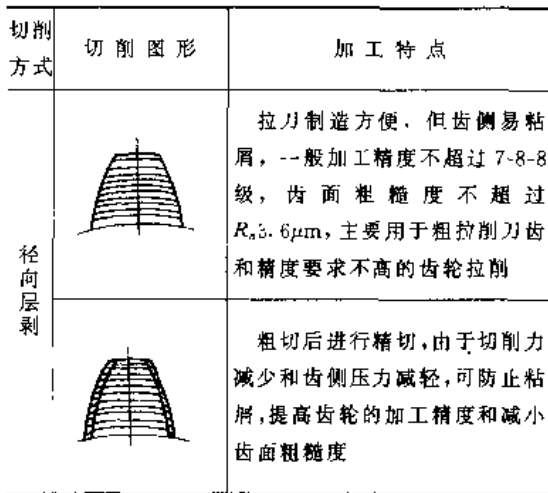 切削方式
切削图形
加工特点
径向层剥
拉刀制造方便，但齿侧易粘
屑，一般加工精度不超过 7-8-8
级，齿面粗糙度不超过
Rₐ3.6μm，主要用于粗拉削刀齿
和精度要求不高的齿轮拉削
粗切后进行精切，由于切削力
减少和齿侧压力减轻，可防止粘
屑，提高齿轮的加工精度和减小
齿面粗糙度